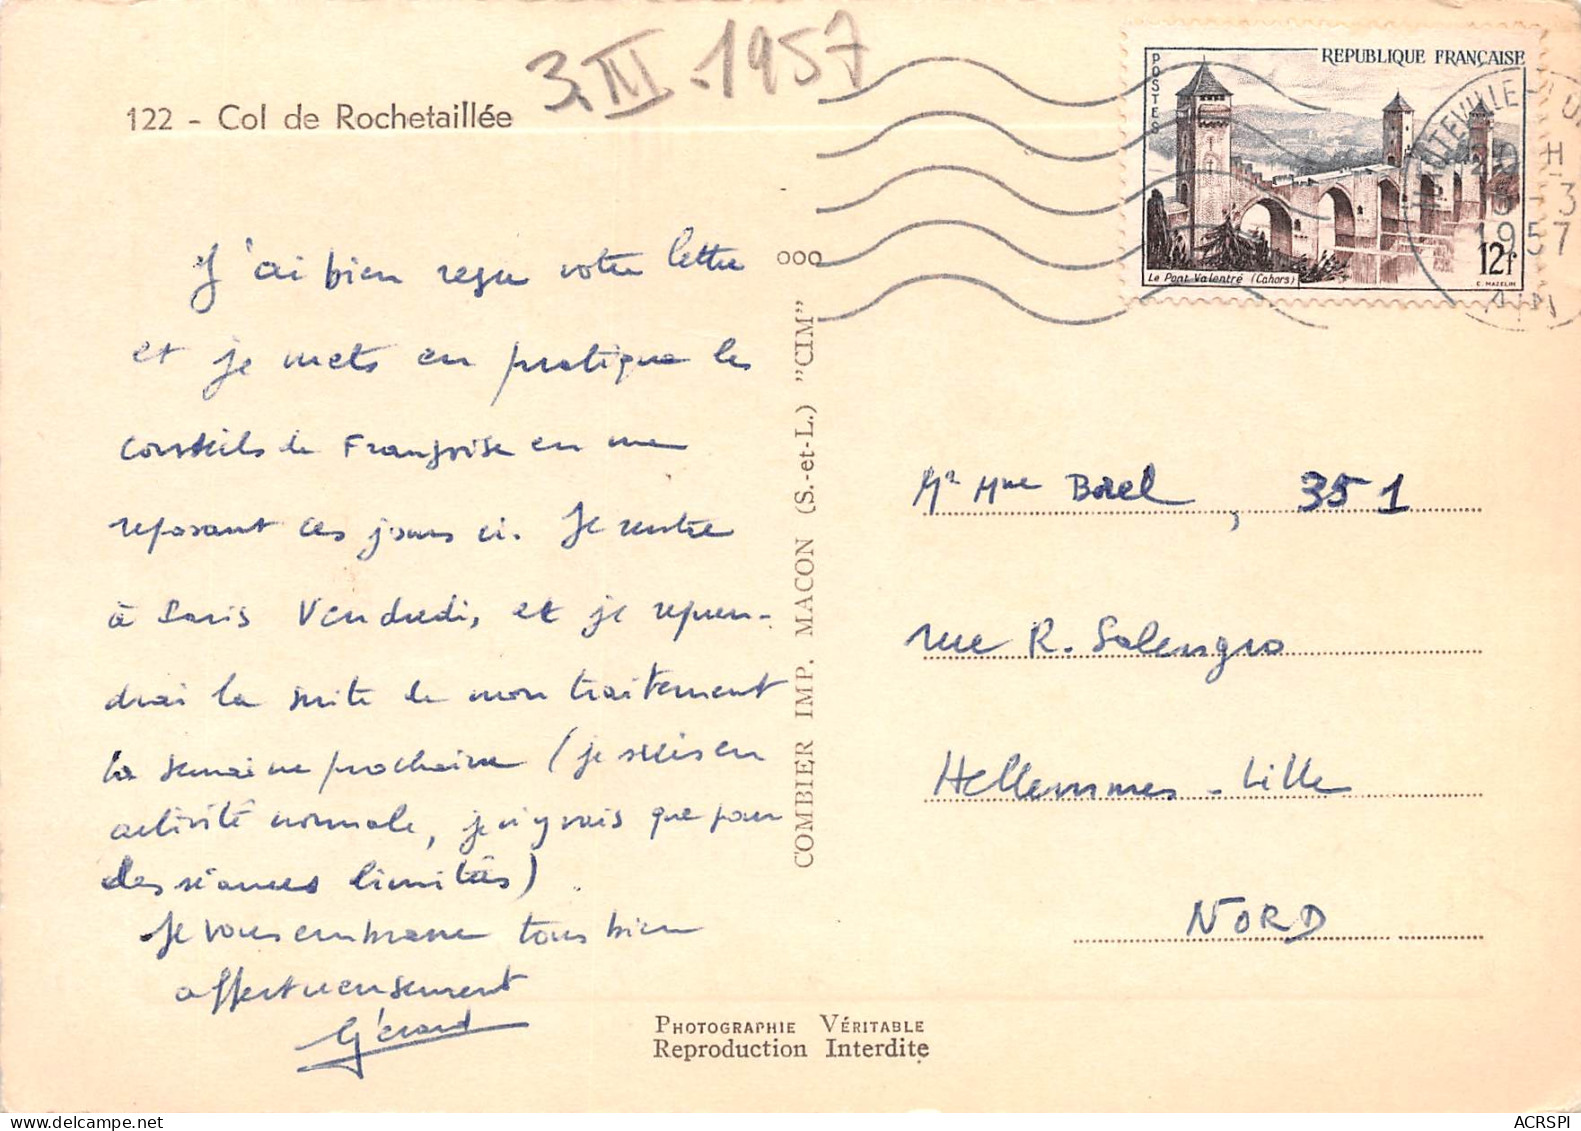 3.III.1957
122 - Col de Rochetaillée
REPUBLIQUE FRANÇAISE
POSTES
Le Pont Valentré (Cahors)
12f
C. MAZELIN
HAUTEVILLE
20 H
5 - 3
1957
AIN
J'ai bien reçu votre lettre
et je mets en pratique les
conseils de Françoise en me
reposant ces jours ci. Je rentre
à Paris Vendredi, et je repren-
drai la suite de mon traitement
la semaine prochaine (je suis en
activité normale, je n'y vais que pour
des séances limitées)
Je vous embrasse tous bien
affectueusement
Gérard
COMBIER IMP. MACON (S.-et-L.) "CIM"
Mr Mme Borel, 351
rue R. Salengro
Hellemmes - Lille
NORD
PHOTOGRAPHIE VÉRITABLE
Reproduction Interdite
ACRSPI